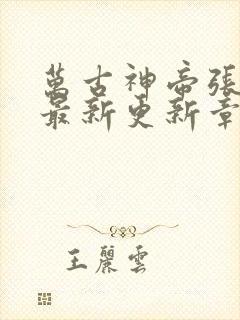 萬古神帝張
最新更新章
王麗雲